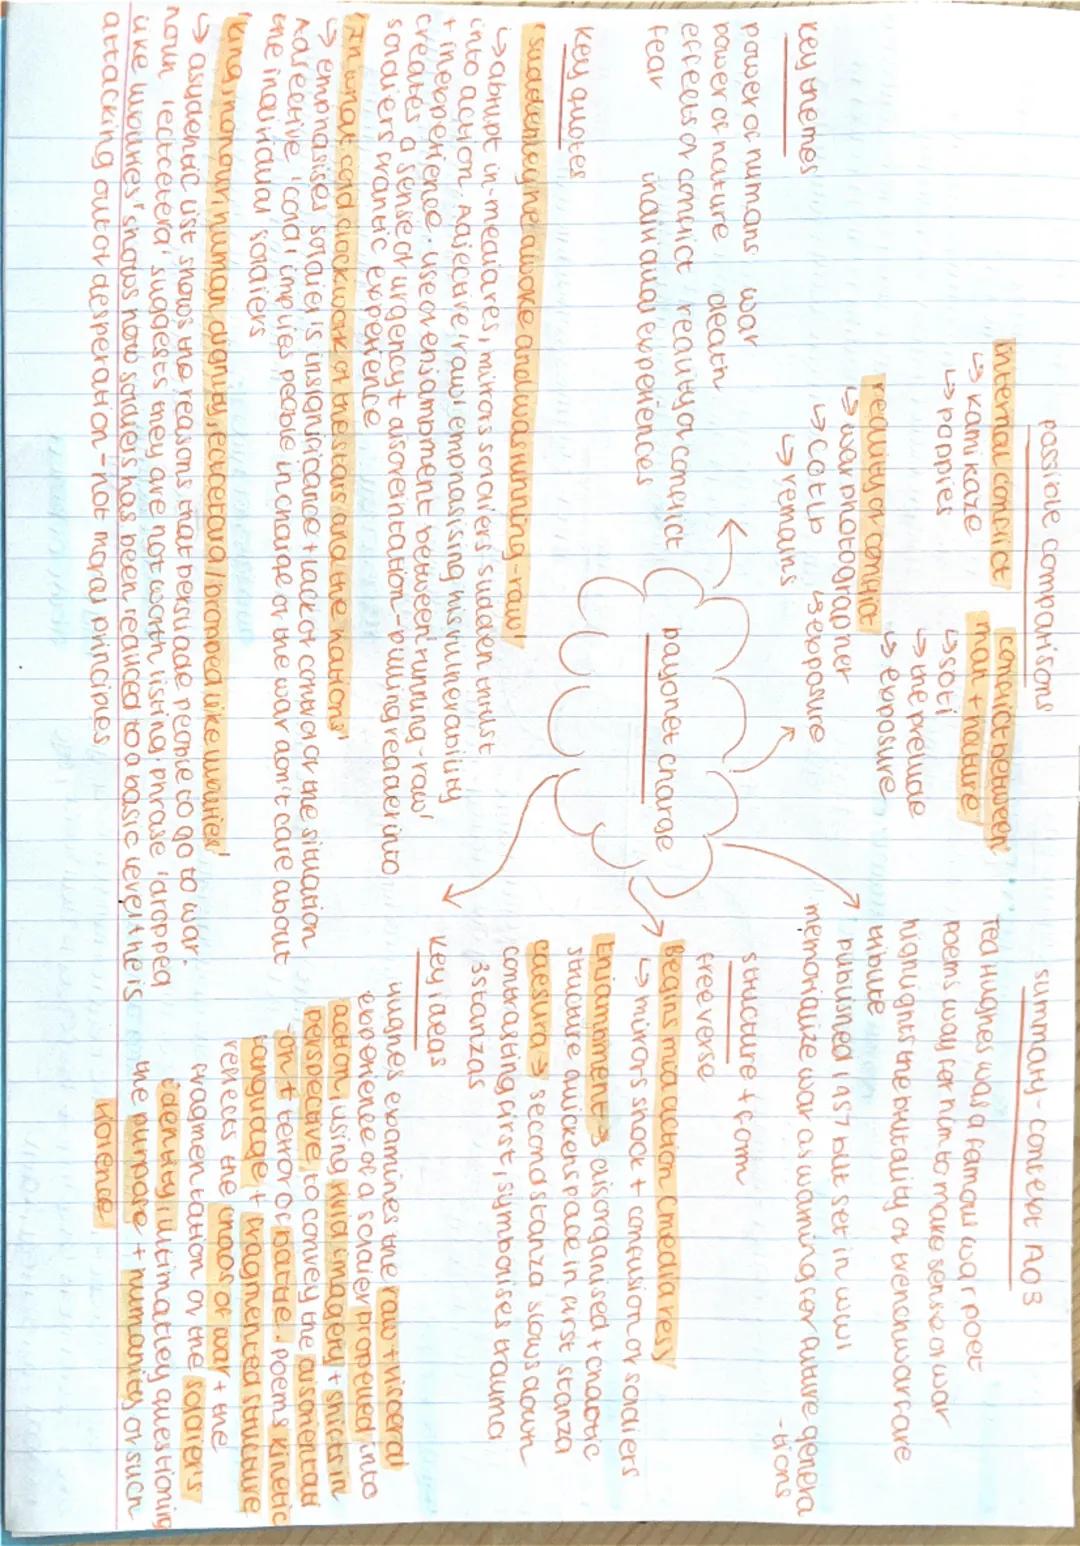 possible comparisons
internal conflict
↳ kamikaze
↳ poppies
conflict between
man + nature
↳ sotl
↳ the prelude
↳ exposure
reality of conflict
↳ war photographer
↳ COTLB
↳ exposure
↳ remains
summary - context AO3
Ted Hughes was a famous war poet
poems way for him to make sense of war
highlights the brutality of trench warfare
tribute
published 1957 but set in WW1
memorialize war as warning for future genera
-tions
key themes
power of humans war
power of nature death
effects of conflict reality of conflict
fear individual experiences
bayonet charge
structure + form
free verse
Begins mid action (medias res)
↳ mirrors shock + confusion of soldiers
Enjambment → disorganised + chaotic
structure quickens pace in first stanza
caesura → second stanza slows down
contrasting first, symbolises trauma
3 stanzas
key quotes
'suddenly he awoke and was running - raw'
↳ abrupt in-media res, mirrors soldiers sudden thrust
into action. Adjective 'raw' emphasising his vulnerability
+ inexperience. use of enjambment between 'running - raw'
creates a sense of urgency + disorientation - pulling reader into
soldiers frantic experience
'In what cold clockwork of the stars and the nations'
↳ emphasises soldier's insignificance + lack of control of the situation
Adjective 'cold' implies people in charge of the war don't care about
the individual soldiers
'King, honour, human dignity, etcetera / Dropped like luxuries'
↳ asyndetic list shows the reasons that persuade people to go to war.
noun 'etcetera' suggests they are not worth listing, phrase 'dropped
like luxuries' shows how soldiers has been reduced to a basic level, he is
attacking out of desperation - not moral principles
key ideas
Hughes examines the raw + visceral
experience of a soldier propelled into
action, using vivid imagery + shifts in
perspective, to convey the disorientati
-on + terror of battle. poem's kinetic
language + fragmented structure
reflects the chaos of war + the
fragmentation of the soldier's
identity, ultimatley questioning
the purpose + humanity of such
violence